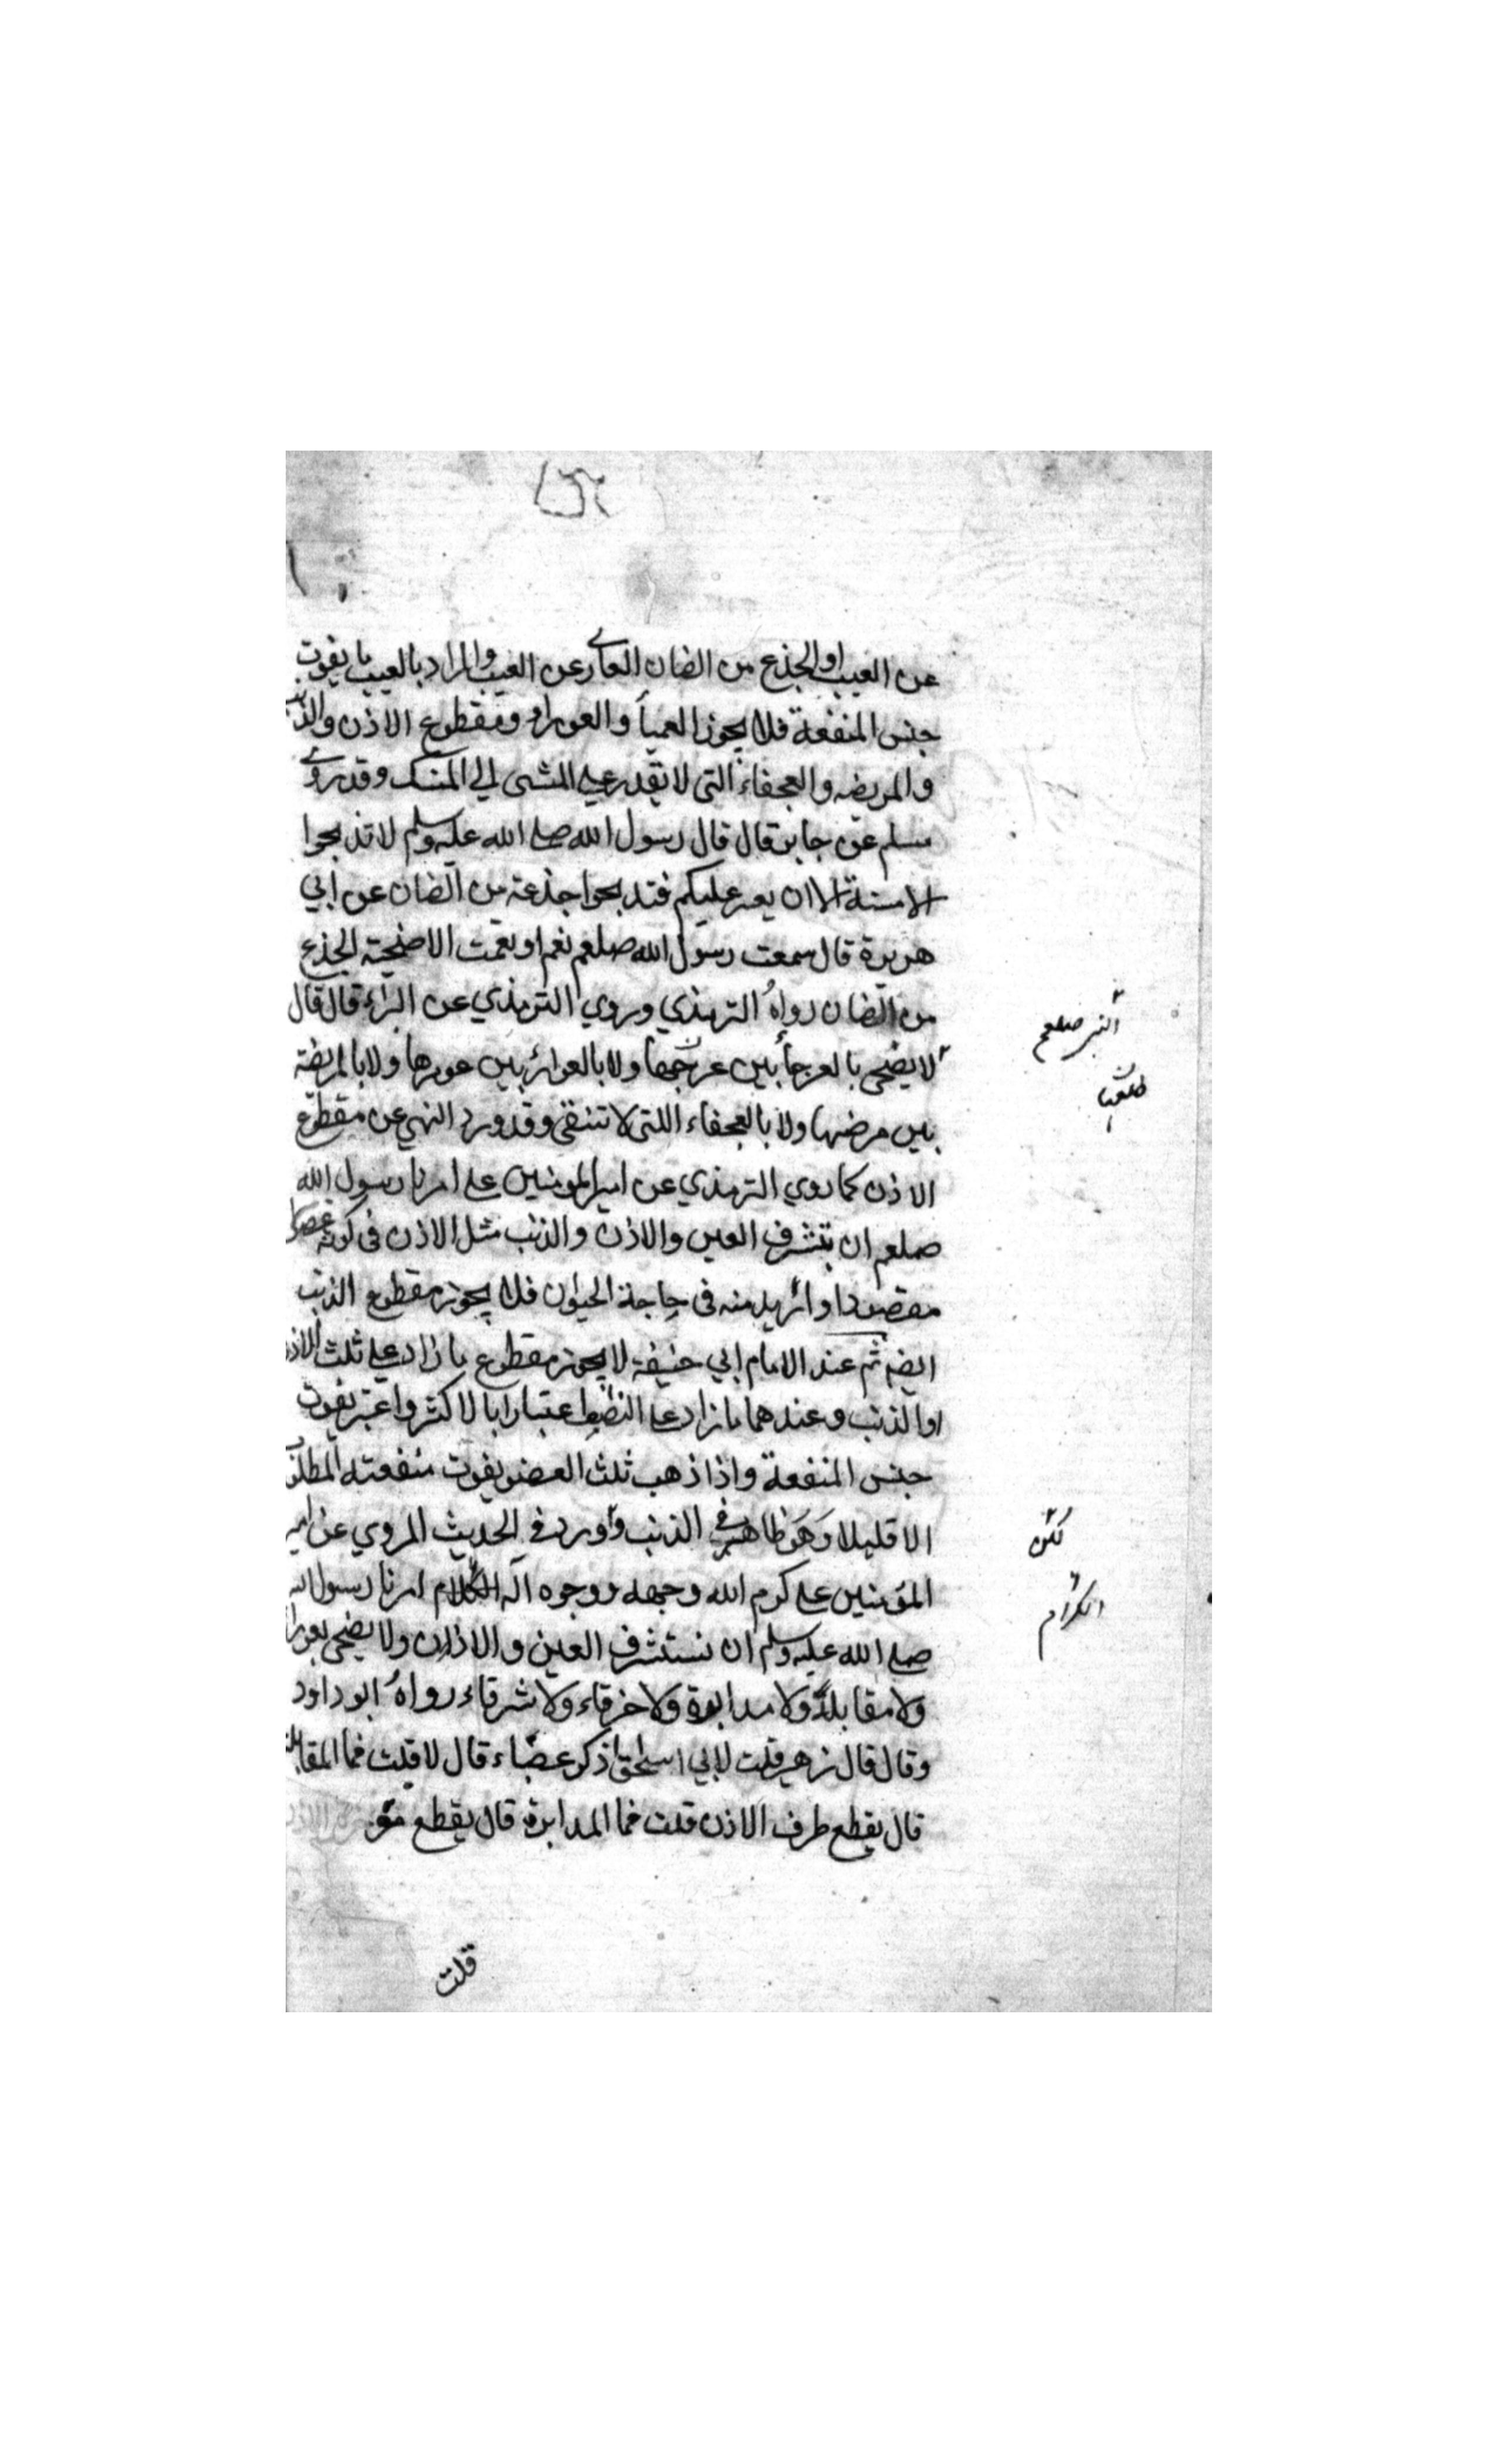 عن العيب او الجذع من الضان العارى عن العيب والمراد بالعيب ما يفوت
جنس المنفعة فلا يجوز العميأ والعوراء ومقطوع الاذن والذنب
والمريضه والعجفاء التى لا تقدر على المشى الى المنسك وقد روى
مسلم عن جابر قال قال رسول الله صلى الله عليه وسلم لا تذبحوا
الا مسنة الا ان يعسر عليكم فتذبحوا جذعة من الضان عن ابي
هريرة قال سمعت رسول الله صلعم نعم او نعمت الاضحية الجذع
من الضان رواه الترمذي وروي الترمذي عن البراء قال قال
النبي صلعم
لا يضحى بالعرجأ بين عرجها ولا بالعوراء بين عورها ولا بالمريضة
بين مرضها ولا بالعجفاء اللتى لا تنقى وقد ورد النهي عن مقطوع
الاذن كما روي الترمذي عن امير المومنين على امرنا رسول الله
صلعم ان نتشرف العين والاذن والذنب مثل الاذن فى كونه عضوا
مقصودا او ازيد منه فى حاجة الحيوان فلا يجوز مقطوع الذنب
ايضا ثم عند الامام ابي حنيفة لا يجوز مقطوع ما زاد على ثلث الاذن
او الذنب وعندهما ما زاد على النصف اعتبارا بالاكثر واعتبر يفوت
جنس المنفعة واذا ذهب ثلث العضو يفوت منفعته المطلوبة
الا قليلا وهو ظاهر فى الذنب واورد فى الحديث المروي عن امير
لكن
المؤمنين على كرم الله وجهه ووجوه آله الكلام امرنا رسول الله
الكرام
صلى الله عليه وسلم ان نستشرف العين والاذن ولا يضحى بعوراء
ولا مقابلة ولا مدابرة ولا خرقاء ولا شرقاء رواه ابو داود
وقال قال زهير قلت لابي اسحق اذكر عضباء قال لا قلت فما المقابلة
قال يقطع طرف الاذن قلت فما المدابرة قال يقطع مؤخرة الاذن
قلت